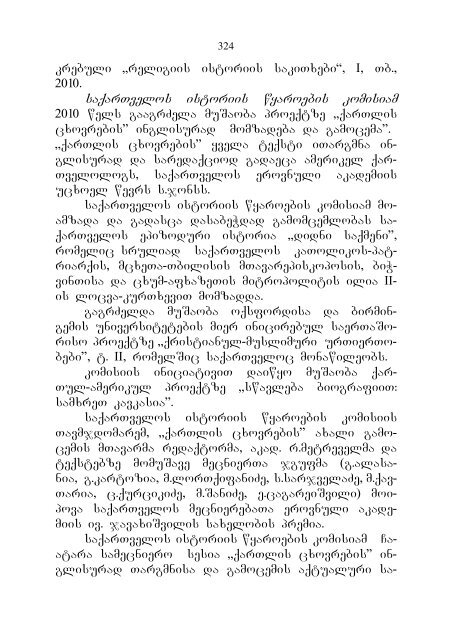 324
კრებული „რელიგიის ისტორიის საკითხები“, I, თბ.,
2010.
საქართველოს ისტორიის წყაროების კომისიამ
2010 წელს გააგრძელა მუშაობა პროექტზე „ქართლის
ცხოვრების” ინგლისურად მომზადება და გამოცემა”.
„ქართლის ცხოვრების” ყველა ტექსტი ითარგმნა ინ-
გლისურად და სარედაქციოდ გადაეცა ამერიკელ ქარ-
თველოლოგს, საქართველოს ეროვნული აკადემიის
უცხოელ წევრს ს.ჯონსს.
საქართველოს ისტორიის წყაროების კომისიამ მო-
ამზადა და გადასცა დასაბეჭდად გამომცემლობას სა-
ქართველოს ეპიზოდური ისტორია „დიდნი საქმენი”,
რომელიც სრულიად საქართველოს კათოლიკოს-პატ-
რიარქის, მცხეთა-თბილისის მთავარეპისკოპოსის, ბიჭ-
ვინთისა და ცხუმ-აფხაზეთის მიტროპოლიტის ილია II-
ის ლოცვა-კურთხევით მომზადდა.
გაგრძელდა მუშაობა ოქსფორდისა და ბირმინ-
გემის უნივერსიტეტების მიერ ინიცირებულ საერთაშო-
რისო პროექტზე „ქრისტიანულ-მუსლიმური ურთიერთო-
ბები”, ტ. II, რომელშიც საქართველოც მონაწილეობს.
კომისიის ინიციატივით დაიწყო მუშაობა ქარ-
თულ-ამერიკულ პროექტზე „სწავლება ბიოგრაფიით:
სამხრეთ კავკასია”.
საქართველოს ისტორიის წყაროების კომისიის
თავმჯდომარემ, „ქართლის ცხოვრების” ახალი გამო-
ცემის მთავარმა რედაქტორმა, აკად. რ.მეტრეველმა და
ტექსტებზე მომუშავე მეცნიერთა ჯგუფმა (გ.ალასა-
ნია, გ.კარტოზია, მ.ლორთქიფანიძე, ს.სარჯველაძე, მ.ქავ-
თარია, ც.ქურციკიძე, მ.შანიძე, ე.ცაგარეიშვილი) მოი-
პოვა საქართველოს მეცნიერებათა ეროვნული აკადე-
მიის ივ. ჯავახიშვილის სახელობის პრემია.
საქართველოს ისტორიის წყაროების კომისიამ ჩა-
ატარა სამეცნიერო სესია „ქართლის ცხოვრების” ინ-
გლისურად თარგმნისა და გამოცემის აქტუალური სა-